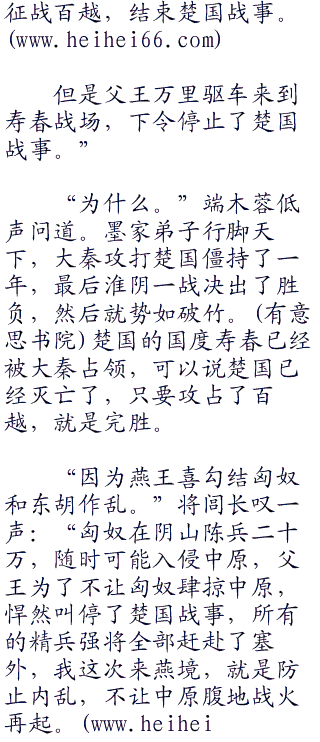 征战百越，结束楚国战事。
(www.heihei66.com)
但是父王万里驱车来到
寿春战场，下令停止了楚国
战事。”
“为什么。”端木蓉低
声问道。墨家弟子行脚天
下，大秦攻打楚国僵持了一
年，最后淮阴一战决出了胜
负，然后就势如破竹。(有意
思书院)楚国的国度寿春已经
被大秦占领，可以说楚国已
经灭亡了，只要攻占了百
越，就是完胜。
“因为燕王喜勾结匈奴
和东胡作乱。”将闾长叹一
声：“匈奴在阴山陈兵二十
万，随时可能入侵中原，父
王为了不让匈奴肆掠中原，
悍然叫停了楚国战事，所有
的精兵强将全部赶赴了塞
外，我这次来燕境，就是防
止内乱，不让中原腹地战火
再起。(www.heihei